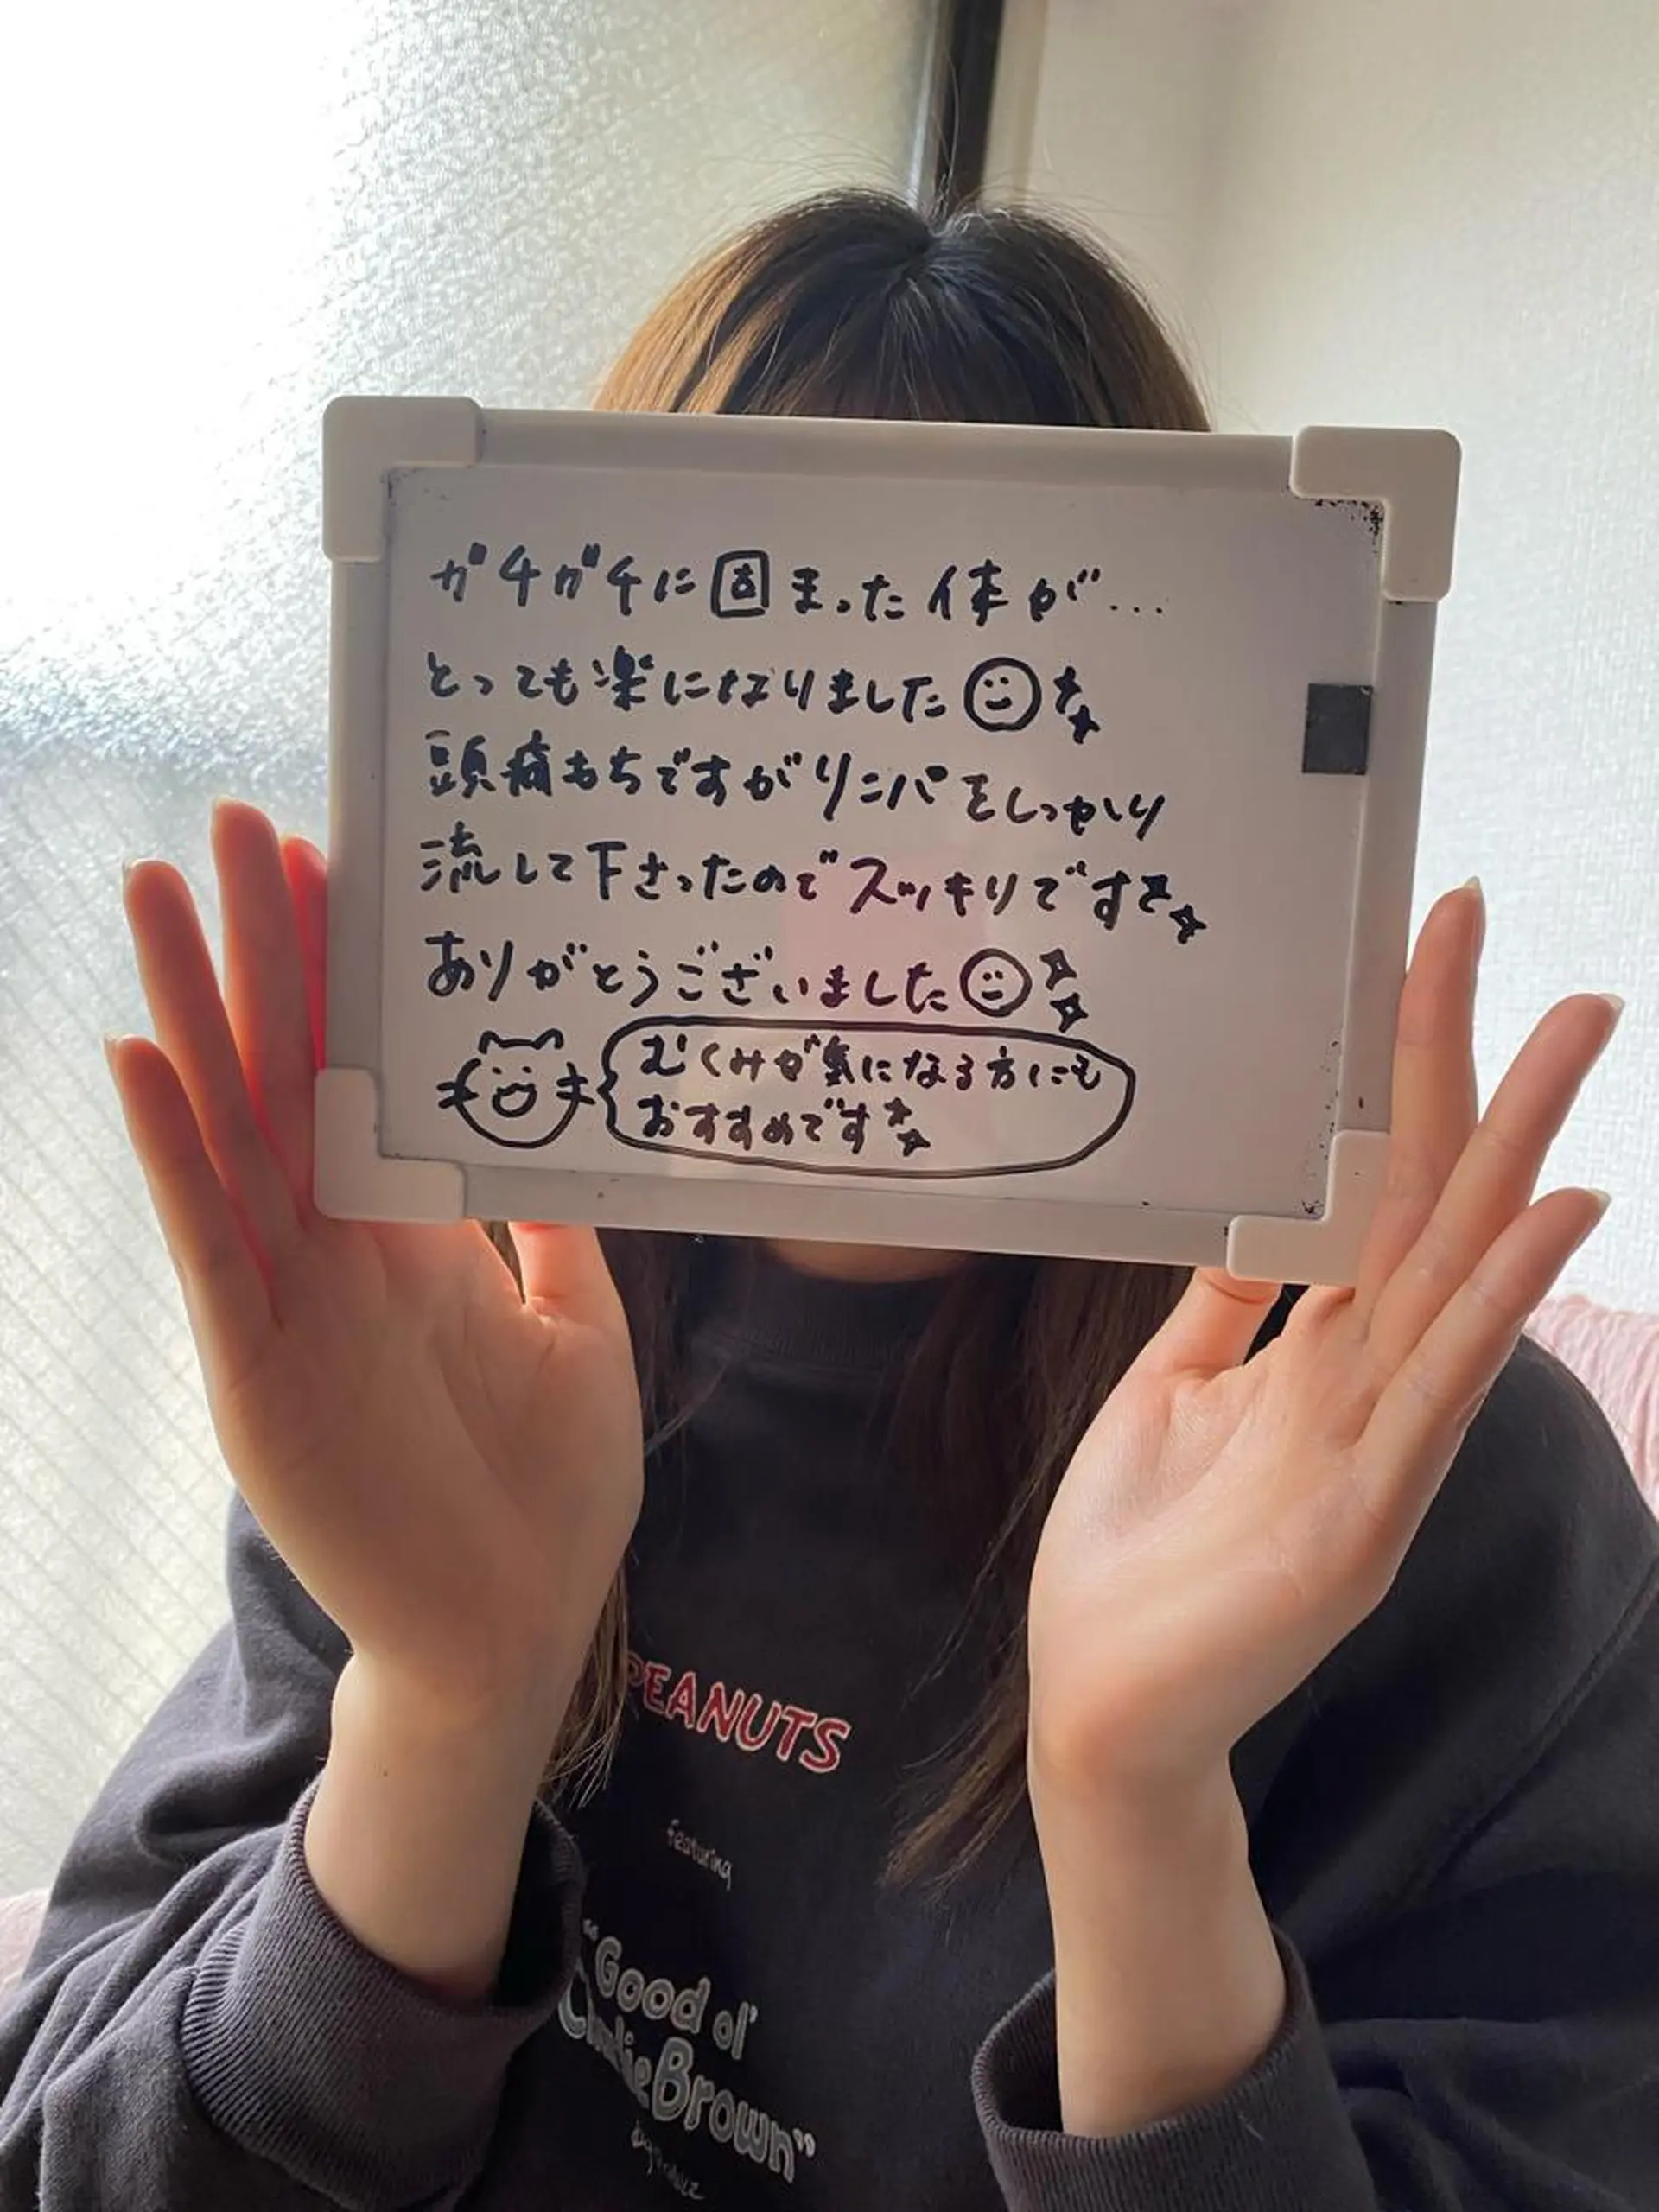 ガチガチに固まった体が...
とっても楽になりました
頭痛もちですがリンパをしっかり
流して下さったのでスッキリです
ありがとうございました
むくみが気になる方にも
おすすめです
PEANUTS
featuring
"Good ol'
Charlie Brown"